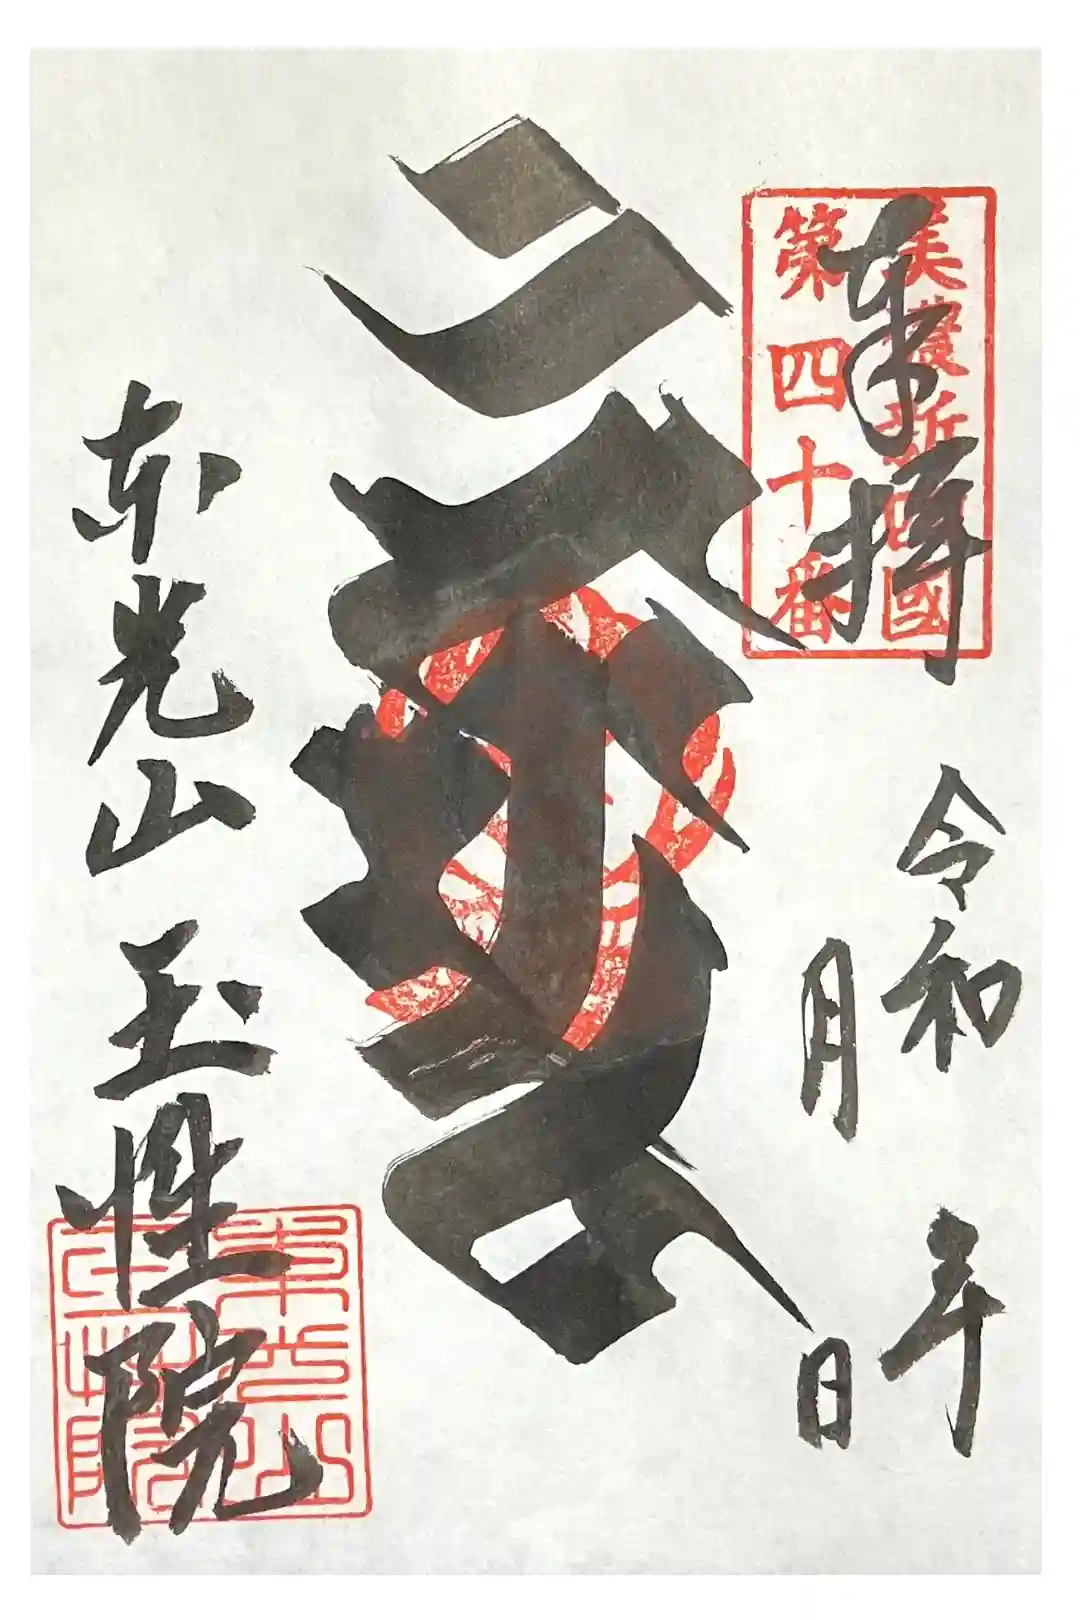 奉拝
美濃新四國
第四十番
令和 年
月 日
本光山 玉性院
本光山
玉性院